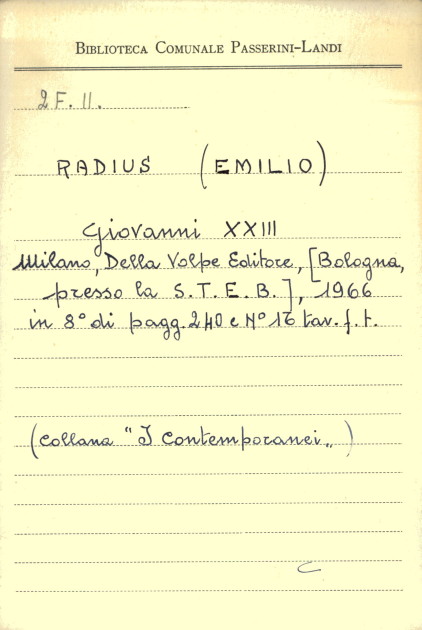 BIBLIOTECA COMUNALE PASSERINI-LANDI
2 F. 11.
RADIUS (EMILIO)
Giovanni XXIII
Milano, Della Volpe Editore, [Bologna,
presso la S.T.E.B.], 1966
in 8° di pagg. 240 e N° 16 tav. f. t.
(Collana "I Contemporanei„)
C